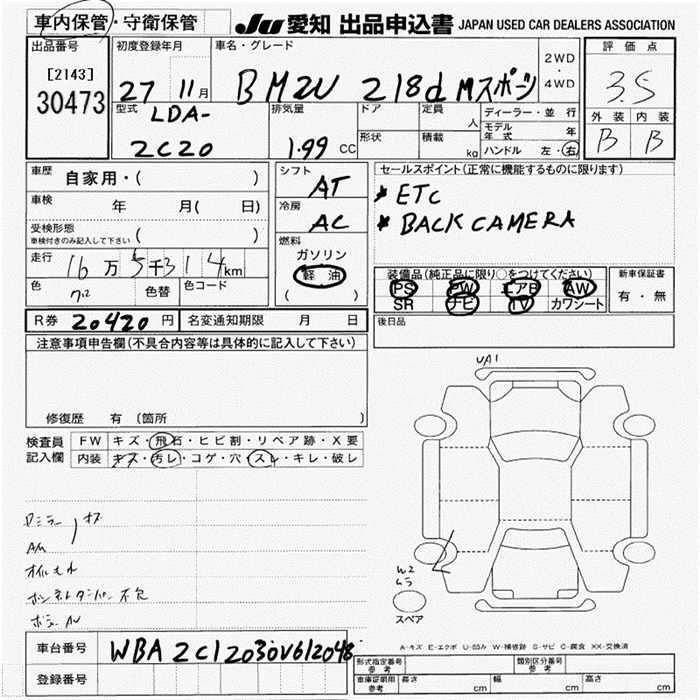 車内保管・守衛保管
JU 愛知 出品申込書 JAPAN USED CAR DEALERS ASSOCIATION
出品番号
[2143]
30473
初度登録年月
27 11月
車名・グレード
BMW 218d Mスポーツ
2WD
・
4WD
評価点
3.5
外装 内装
B B
型式
LDA-
2C20
排気量
1.99 CC
ドア
形状
定員
人
積載
kg
ディーラー・並行
モデル年式 年
ハンドル 左・右
車歴
自家用・( )
車検
年 月( 日)
受検形態
車検付きのみ記入して下さい ( )
走行
16万5千314km
色
色替
色コード
シフト
AT
冷房
AC
燃料
ガソリン
軽油
( )
セールスポイント(正常に機能するものに限ります)
* ETC
* BACK CAMERA
装備品(純正品に限り○をつけてください)
PS PW エアB AW
SR ナビ TV カワシート
新車保証書
有・無
R券 20420円
名変通知期限 月 日
後日品
注意事項申告欄(不具合内容等は具体的に記入して下さい)
修復歴 有 (箇所 )
検査員
記入欄
FW キズ・飛石・ヒビ割・リペア跡・X要
内装 キズ・汚レ・コゲ・穴・スレ・キレ・破レ
UA1
W2
スペア
A-キズ E-エクボ U-凹み W-補修跡 S-サビ C-腐食 XX-交換済
車台番号 WBA2C12030V612048
登録番号
形式指定番号
参考
類別区分番号
参考
車庫証明用
参考
長さ cm
幅 cm
高さ cm